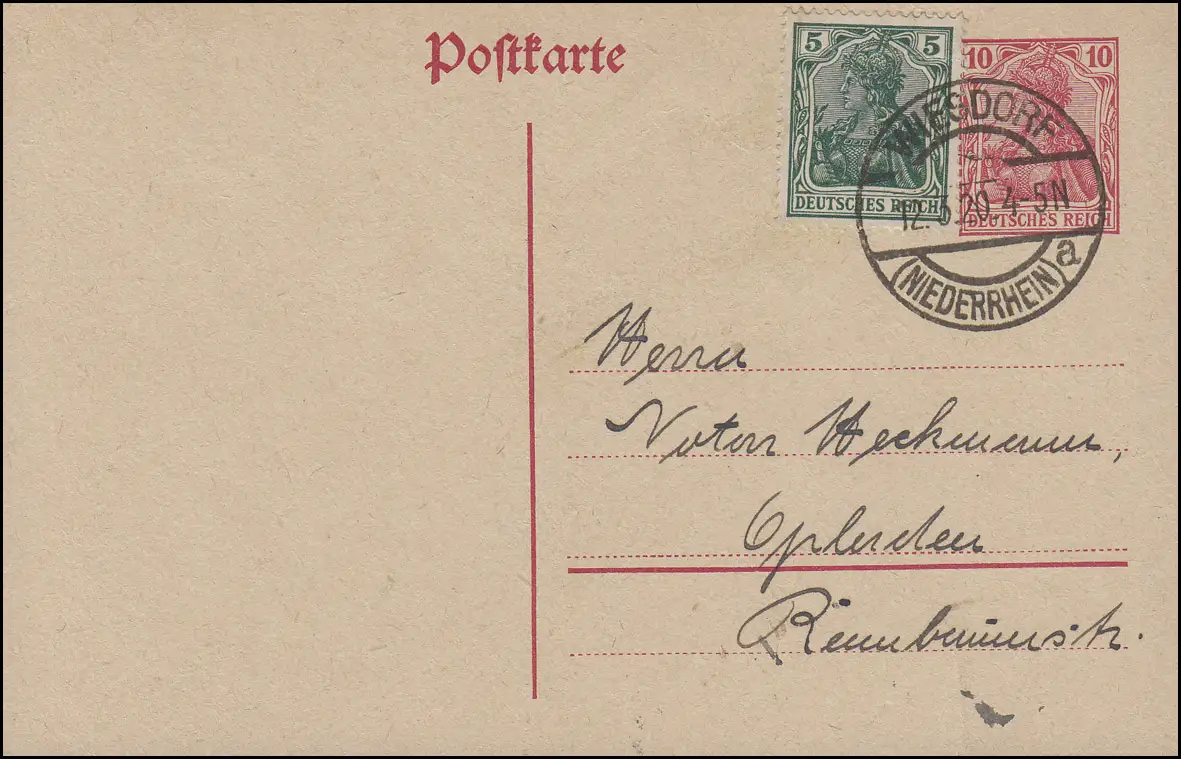 Postkarte
5 5
DEUTSCHES REICH
10 10
DEUTSCHES REICH
WIESDORF
12.5.20. 4-5N
(NIEDERRHEIN) a
Herrn
Notar Heckmann,
Opladen
Rennbaumstr.